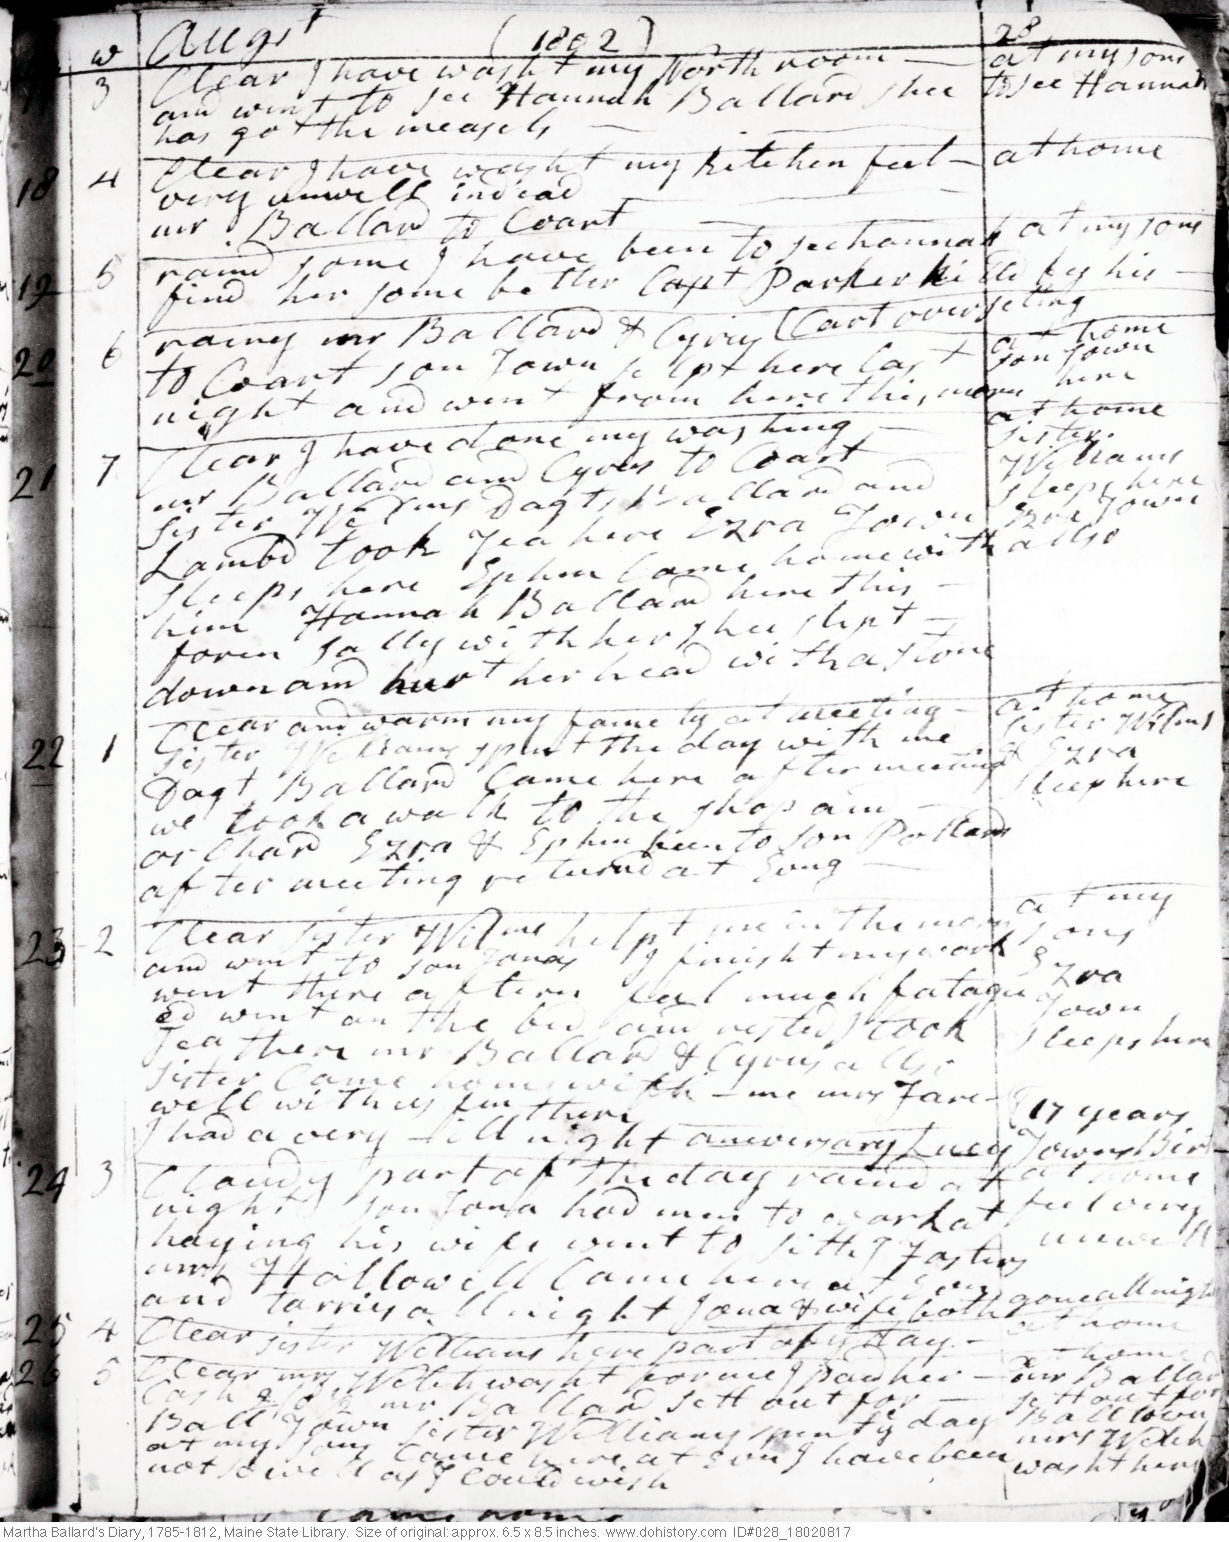 w Augst (1802) 28
17 3 Clear I have washt my North room at my sons
and went to see Hannah Ballard shee to see Hannah
has got the measels
18 4 Clear I have washt my kitchen feel at home
very unwell indead
mr Ballard to Coart
19 5 raind some I have been to see hannah at my sons
find her some better Capt Parker killd by his
Cart over seting
20 6 rainy mr Ballard & Cyrus at home
to Coart son Town slept here last son Town
night and went from here this morn here
21 7 Clear I have done my washing at home
mr Ballard and Cyrus to Coart sister
sister Wilms Dagts Ballard and Williams
Lambd took Tea here Ezra Town sleeps here
sleeps here Ephm Came home with Ezra Town
him Hannah Ballard here this allso
foren sally with her shee slipt
down and hurt her head with a stone
22 1 Clear and warm my famely at meeting at home
sister Williams spent the day with me sister Wilms
Dagt Ballard Came here after meeting & Ezra
we took a walk to the shop and sleep here
orchard Ezra & Ephm been to son Pollards
after meeting returnd at Evng
23 2 Clear sister Wilms helpt me in the morn at my
and went to son Jonas I finisht my work sons
went there aftern feel much fatagu Ezra
ed went on the bed and rested I took Town
Tea there mr Ballard & Cyrus allso sleeps here
sister Came home with me mrs Fare-
well with us from there
I had a very ill night aniversary Lucy Towns Birth
17 years
24 3 Cloudy part of the day raind at at home
night son Jona had men to work at feel very
haying his wife went to unwell
mrs Hollowell Came here at Evng
and tarries all night Jona & wife both gone all night
25 4 Clear sister Williams here part of ye day at home
26 5 Clear mrs Welch washt for me I paid her at home
Cash mr Ballard sett out for mr Ballard
Ball Town sister Williams spent ye day sett out for
at my sons Came here at Evn I have been Balltown
not so well as I Could wish mrs Welch
washt here
Martha Ballard's Diary, 1785-1812, Maine State Library. Size of original: approx. 6.5 x 8.5 inches. www.dohistory.com ID#028_18020817